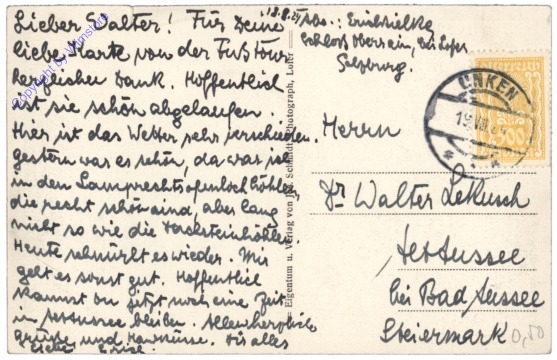 Lieber Walter! Für Deine
liebe Karte von der Fußtour
herzlichen Dank. Hoffentlich
ist sie schön abgelaufen.
Hier ist das Wetter sehr verschieden.
gestern war es schön, da war ich
in den Lamprechtsofenlochhöhlen,
die recht schön sind, aber lang
nicht so wie die Dachsteinhöhlen.
Heute schnürlt es wieder. Mir
geht es sonst gut. Hoffentlich
kannst du jetzt noch eine Zeit
in Altaussee bleiben. Allerherzlichste
grüße und
Eigentum u. Verlag von Schmidt, Photograph, Lofer
Abs.:
Schloß Oberrain, bei Lofer
Salzburg.
UNKEN
Herrn
Dr Walter Lekusch
Altaussee
bei Bad Aussee
Steiermark
0,50